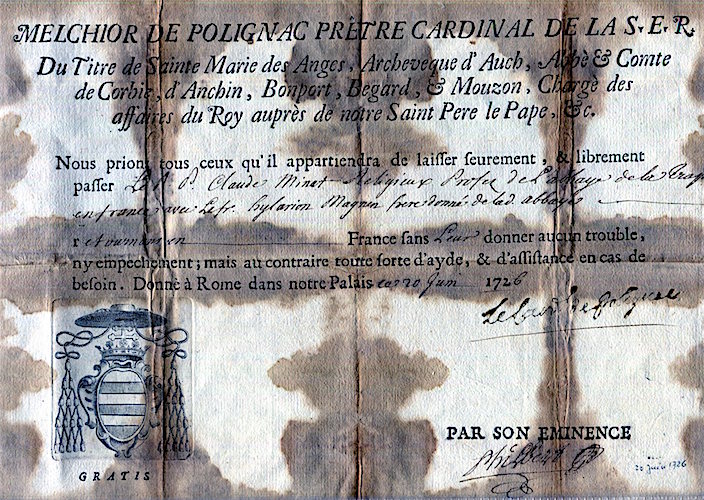 MELCHIOR DE POLIGNAC PRÊTRE CARDINAL DE LA S. E. R.
Du Titre de Sainte Marie des Anges, Archeveque d'Auch, Abbè & Comte
de Corbie, d'Anchin, Bonport, Begard, & Mouzon, Chargé des
affaires du Roy auprès de notre Saint Pere le Pape, &c.
Nous prions tous ceux qu'il appartiendra de laisser seurement, & librement
passer Le R. P. Claude Minot Religieux Profes de l'abbaye de la
en france avec le fr. hylarion Magnin frere donné de lad. abbaye
retournant en France sans Leur donner aucun trouble,
ny empechement; mais au contraire toute sorte d'ayde, & d'assistance en cas de
besoin. Donné à Rome dans notre Palais ce 20 Juin 1726
Le Card. de Polignac
PAR SON EMINENCE
GRATIS
20 juin 1726